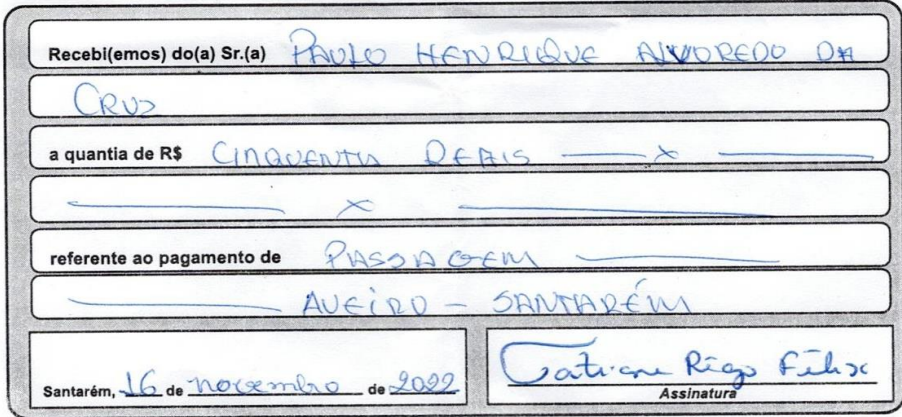 Recebi(emos) do(a) Sr.(a) PAULO HENRIQUE ALVOREDO DA
CRUZ
a quantia de R$ CINQUENTA REAIS —— x ——
—— x ——
referente ao pagamento de PASSAGEM ——
—— AVEIRO - SANTARÉM
Santarém, 16 de novembro de 2022
Tatiane Rigo Félix
Assinatura